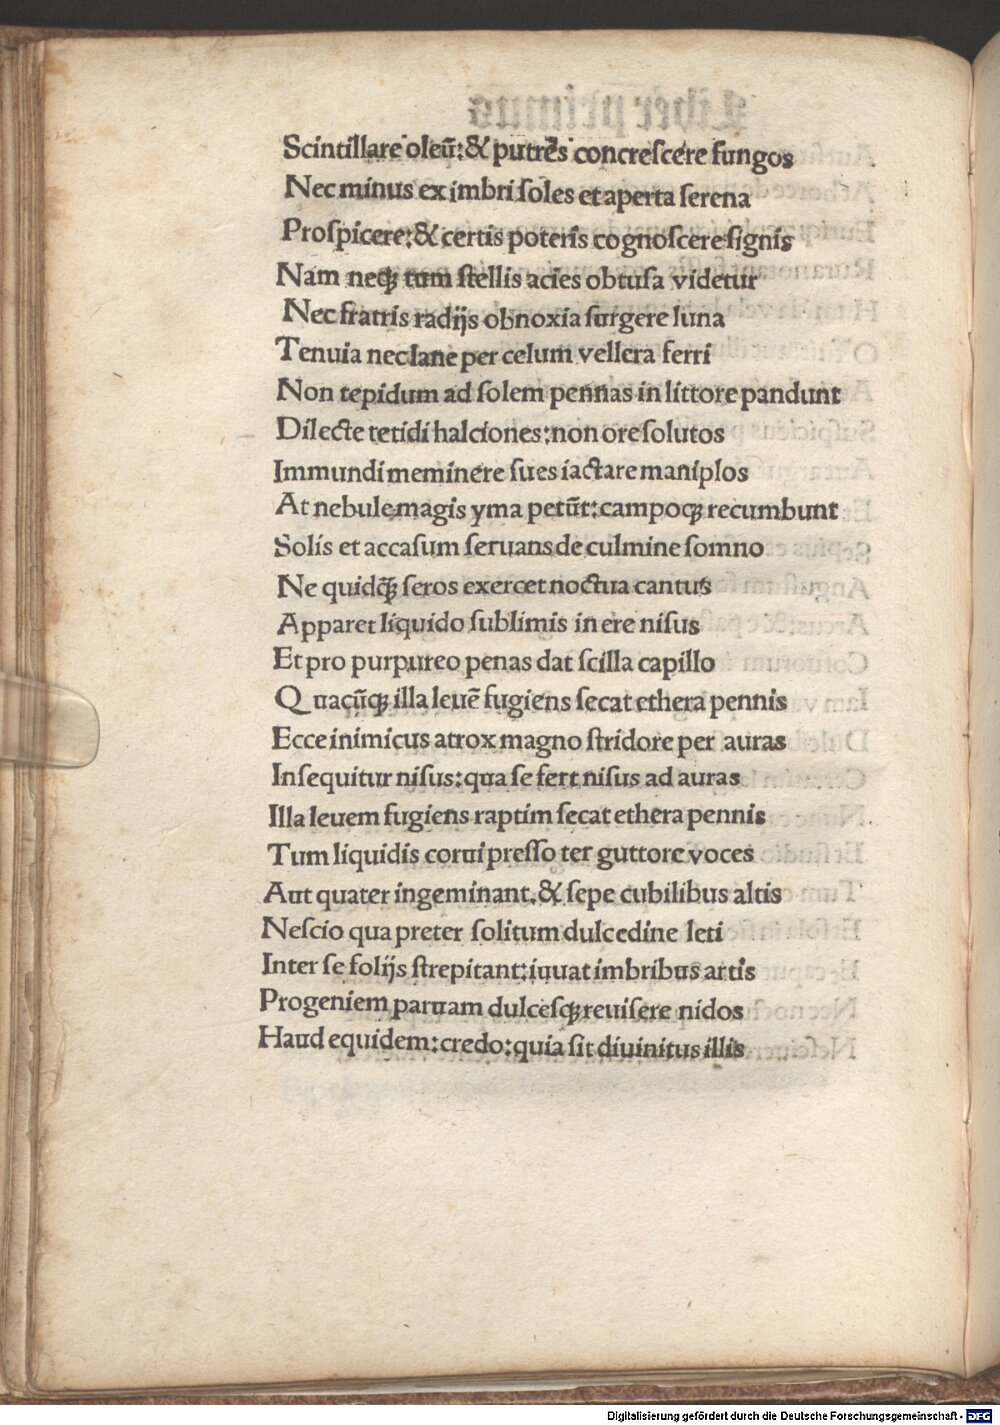 Scintillare oleū:& putrēs concreſcere fungos
Nec minus ex imbri ſoles et aperta ſerena
Proſpicere:& certis poteris cognoſcere ſignis
Nam neqꝫ tum ſtellis acies obtuſa videtur
Nec fratris radijs obnoxia ſurgere luna
Tenuia nec lane per celum vellera ferri
Non tepidum ad ſolem pennas in littore pandunt
Dilecte tetidi halciones:non ore ſolutos
Immundi meminere ſues iactare maniplos
At nebule magis yma petūt:campoqꝫ recumbunt
Solis et accaſum ſeruans de culmine ſomno
Ne quidq̄ꝫ ſeros exercet noctua cantus
Apparet liquido ſublimis in ere niſus
Et pro purpureo penas dat ſcilla capillo
Quacūqꝫ illa leuē fugiens ſecat ethera pennis
Ecce inimicus atrox magno ſtridore per auras
Inſequitur niſus:qua ſe fert niſus ad auras
Illa leuem fugiens raptim ſecat ethera pennis
Tum liquidis corui preſſo ter guttore voces
Aut quater ingeminant.& ſepe cubilibus altis
Neſcio qua preter ſolitum dulcedine leti
Inter ſe folijs ſtrepitant:iuuat imbribus artis
Progeniem paruam dulceſqꝫ reuiſere nidos
Haud equidem:credo:quia ſit diuinitus illis
Digitalisierung gefördert durch die Deutsche Forschungsgemeinschaft - DFG